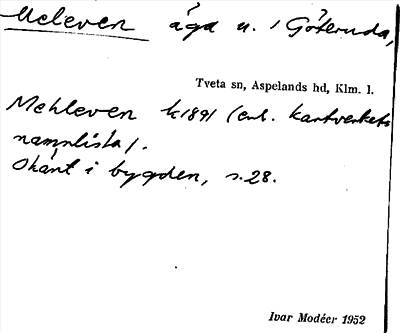 Meleven äga u. i Göteruda,
Tveta sn, Aspelands hd, Klm. l.
Mehleven k1891 (enl. kartverkets
namnlista).
Okänt i bygden, s. 28.
Ivar Modéer 1952